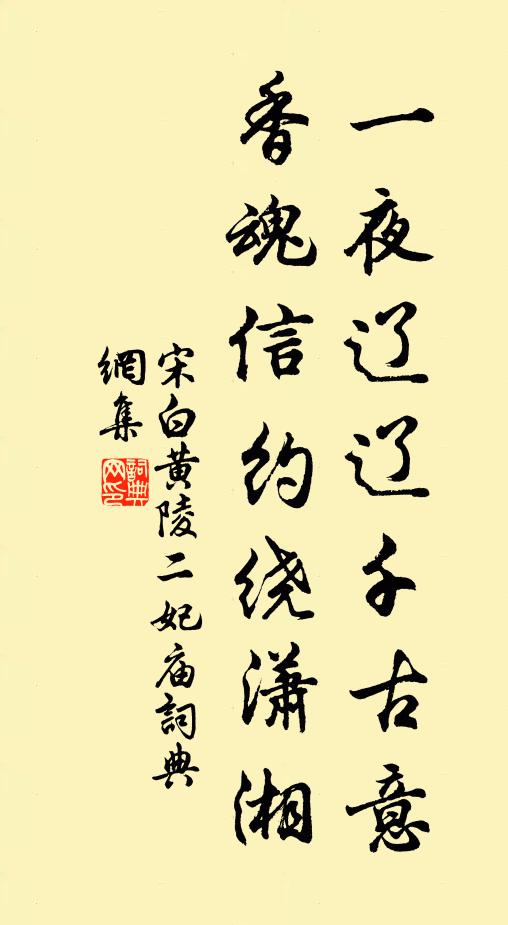 一夜辽辽千古意
香魂信约绕潇湘
宋白黄陵二妃庙詞典
網集
詞典网印